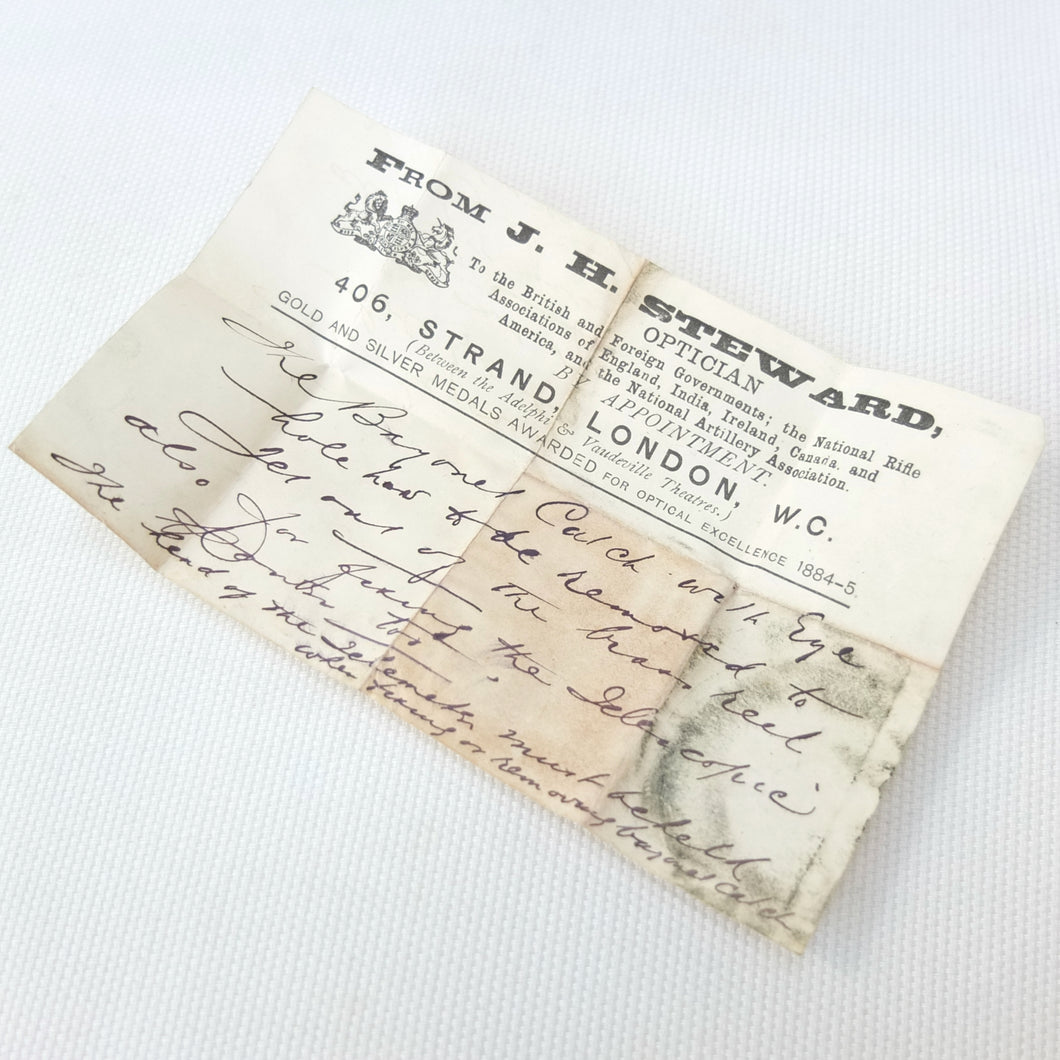 FROM J. H. STEWARD,
OPTICIAN
To the British and Foreign Governments; the National Rifle
Associations of England, India, Ireland, Canada, and
America, and the National Artillery Association.
BY APPOINTMENT.
406, STRAND, LONDON, W.C.
(Between the Adelphi & Vaudeville Theatres.)
GOLD AND SILVER MEDALS AWARDED FOR OPTICAL EXCELLENCE 1884-5.
The Bayonet Catch with Eye
hole has to be removed to
Get out of the brass reel
also. for fixing the Telescopic
too.
The kend of the Telemeter must be held
when fixing or removing bayonet catch